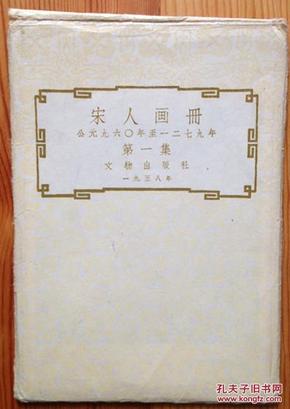 宋人画冊
公元九六〇年至一二七九年
第一集
文物出版社
一九五八年
孔夫子旧书网
www.kongfz.com